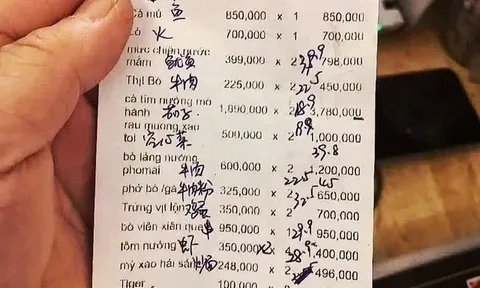 Cá mú 鱼 850,000 x 1 850,000
Lò 火 700,000 x 1 700,000
mực chiên nước
mắm 鱿鱼 399,000 x 2 798,000
Thịt Bò 牛肉 225,000 x 2 22.5 450,000
cà tím nướng mỡ
hành 茄子 1,890,000 x 2 3,780,000
rau muống xào
tỏi 菜 500,000 x 2 1,000,000
39.8
bò lảng nướng
phomai 牛肉 600,000 x 2 1,200,000
phở bò /gà 牛肉粉 325,000 x 2 32.5 650,000
Trứng vịt lộn 350,000 x 2 700,000
bò viên xiên que 950,000 x 1 950,000
tôm nướng 虾 350,000 x2 x 4 1,400,000
mỳ xào hải sản 248,000 x 2 496,000
Tiger 100,000